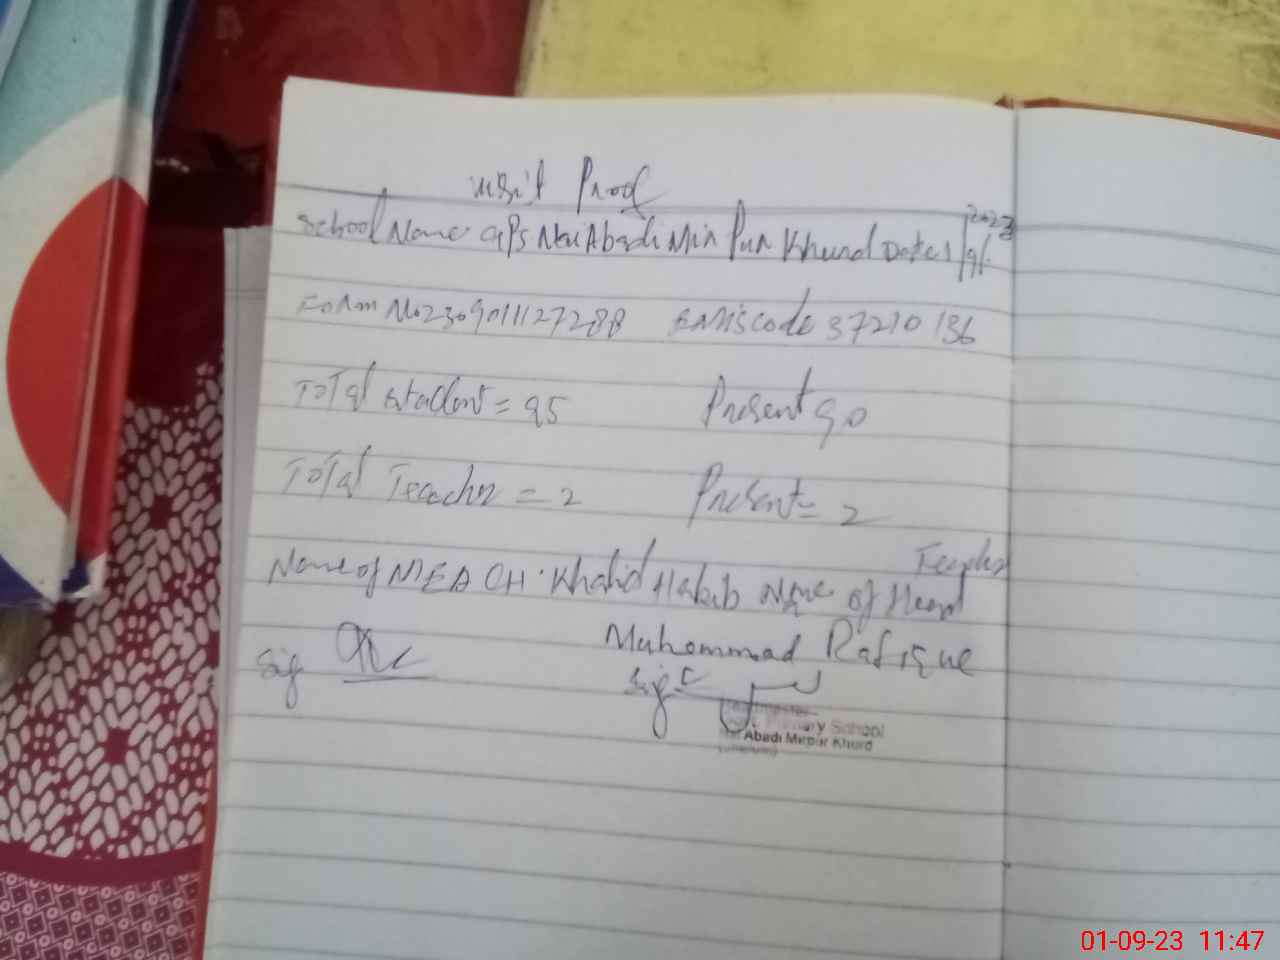 visit Proof
School Name GPS Nai Abadi Mir Pur Khurd Date 1/9/2023
Form No 2309011127288 EMIS code 37210136
Total student = 95 Present 90
Total Teacher = 2 Present = 2
Name of MEA CH. Khalid Habib Name of Head Teacher
Muhammad Rafique
Sig Sig
Primary School
Abadi Mirpur Khurd
01-09-23 11:47